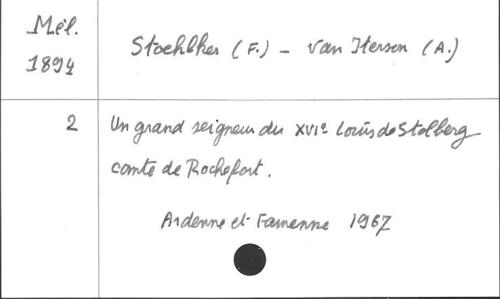 Mél. 1894
Stoehlker (F.) - Van Iterson (A.)
2
Un grand seigneur du XVIe Louis de Stolberg
comte de Rochefort.
Ardenne et Famenne 1967